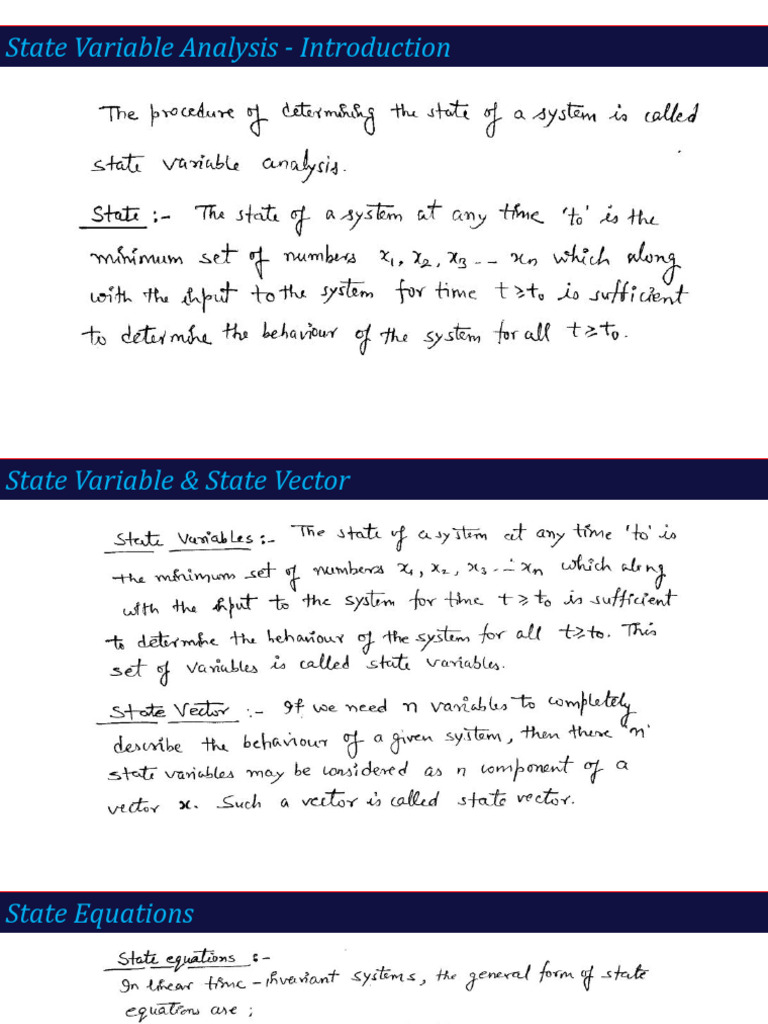 State Variable Analysis - Introduction
The procedure of determining the state of a system is called
state variable analysis.
State :- The state of a system at any time 'to' is the
minimum set of numbers x1, x2, x3 -- xn which along
with the input to the system for time t≥to is sufficient
to determine the behaviour of the system for all t≥to.
State Variable & State Vector
State Variables :- The state of a system at any time 'to' is
the minimum set of numbers x1, x2, x3 -- xn which along
with the input to the system for time t≥to is sufficient
to determine the behaviour of the system for all t≥to. This
set of variables is called state variables.
State Vector :- If we need n variables to completely
describe the behaviour of a given system, then these 'n'
state variables may be considered as n component of a
vector x. Such a vector is called state vector.
State Equations
State equations :-
In linear time-invariant systems, the general form of state
equations are ;